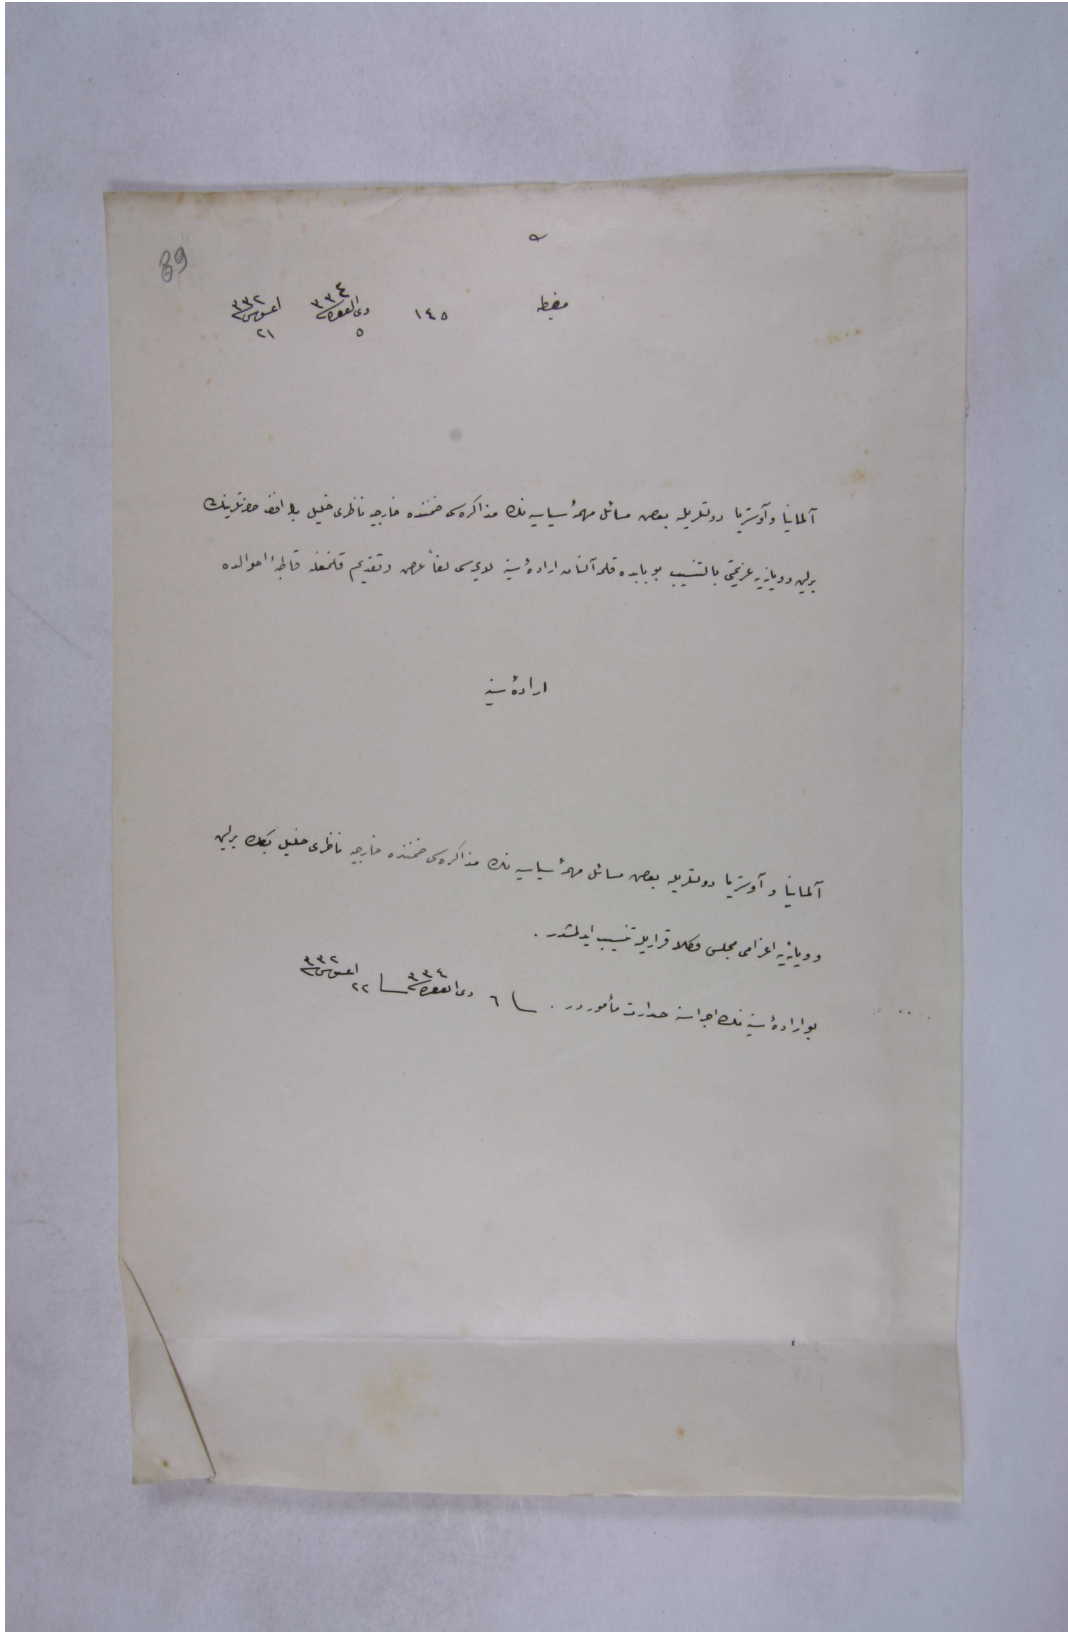 89
مضبطه ١٤٥ ذی القعده ٣٣٤ ٥ اغستوس ٣٣٢ ٢١
آلمانيا و آوستريا دولتلريله بعض مسائل مهمهٔ سياسيه نك مذاكره سی ضمننده خارجيه ناظری خليل بك افندی حضرتلرينك
برلين و ويانه يه عزيمتی بالتنسيب بو بابده قلمه آلنان ارادهٔ سنيه لايحه سی لفاً عرض و تقديم قلنمغله قاطبهٔ احوالده
ارادهٔ سنيه
آلمانيا و آوستريا دولتلريله بعض مسائل مهمهٔ سياسيه نك مذاكره سی ضمننده خارجيه ناظری خليل بكك برلين
و ويانه يه اعزامی مجلس وكلا قراريله تنسيب ايدلمشدر .
بو ارادهٔ سنيه نك اجراسنه صدارت مأموردر . ٦ ذی القعده ٣٣٤ ٢٢ اغستوس ٣٣٢